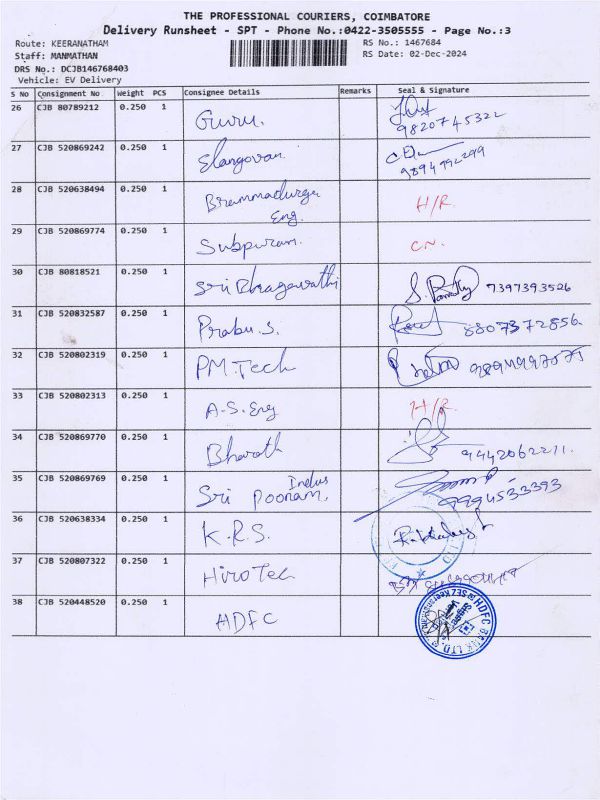 THE PROFESSIONAL COURIERS, COIMBATORE
Delivery Runsheet - SPT - Phone No.:0422-3505555 - Page No.:3
Route: KEERANATHAM RS No.: 1467684
Staff: MANMATHAN RS Date: 02-Dec-2024
DRS No.: DCJB146768403
Vehicle: EV Delivery
S No Consignment No Weight PCS Consignee Details Remarks Seal & Signature
26 CJB 80789212 0.250 1 Guru. 9820745322
27 CJB 520869242 0.250 1 Elangovan
28 CJB 520638494 0.250 1 Brammadurga H/R.
Eng.
29 CJB 520869774 0.250 1 Subpuram. C.N.
30 CJB 80818521 0.250 1 Sri Bhagawathi 7397393526
31 CJB 520832587 0.250 1 Prabu.S. 8807372856.
32 CJB 520802319 0.250 1 PM.Tech
33 CJB 520802313 0.250 1 A.S.Eng H/R.
34 CJB 520869770 0.250 1 Bharath 9442062211.
35 CJB 520869769 0.250 1 Sri Poonam, Indus 9994533393
36 CJB 520638334 0.250 1 K.R.S.
37 CJB 520807322 0.250 1 Hiro Tec
38 CJB 520448520 0.250 1 HDFC
HDFC BANK LTD.